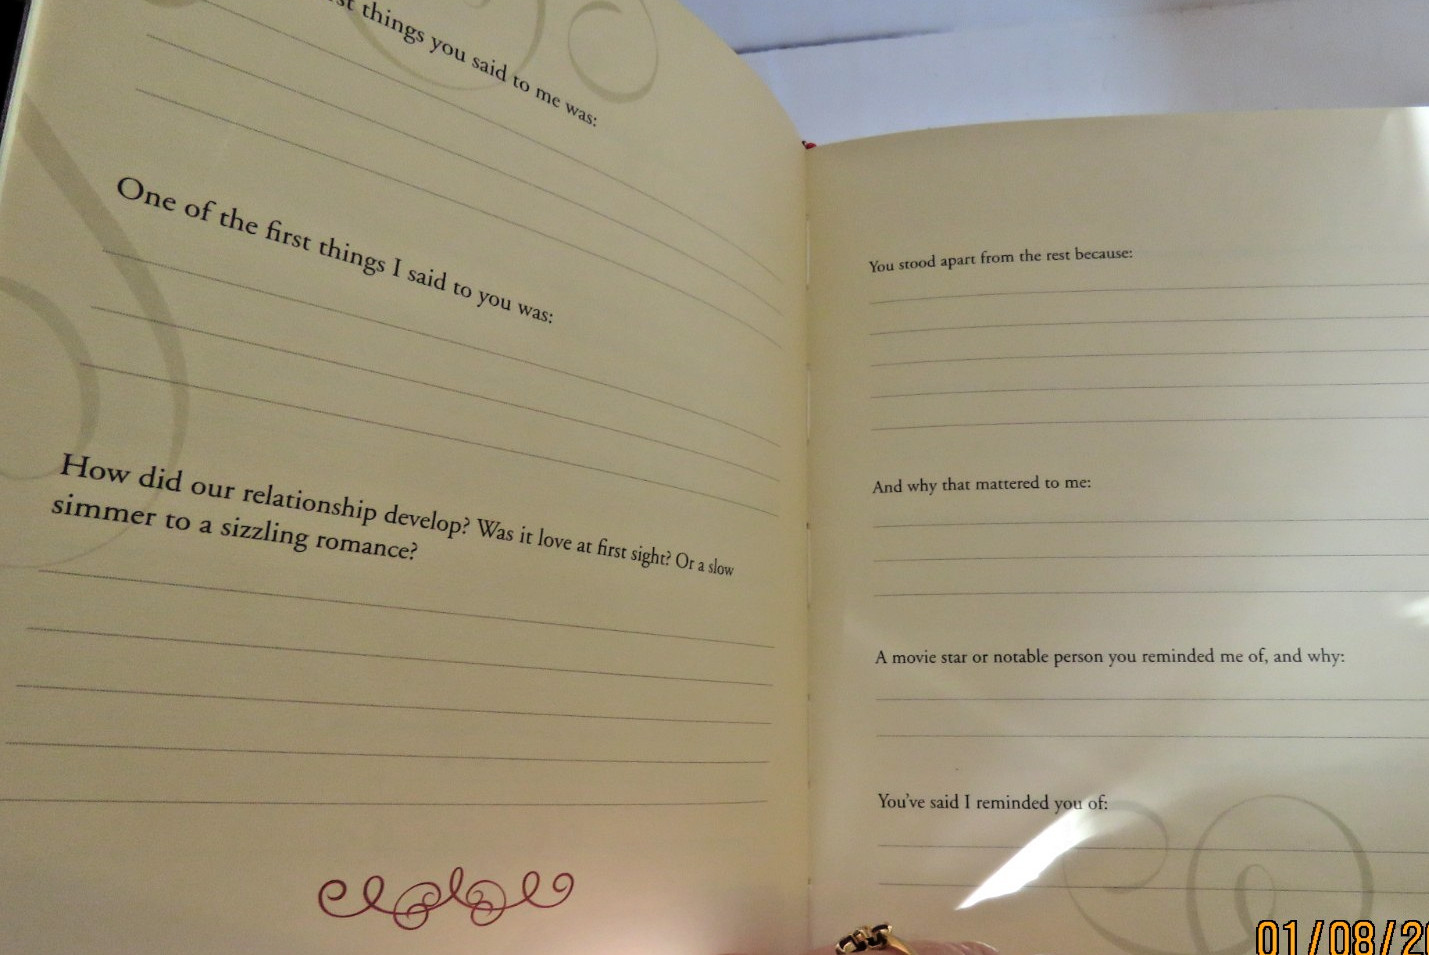 things you said to me was:
One of the first things I said to you was:
How did our relationship develop? Was it love at first sight? Or a slow
simmer to a sizzling romance?
You stood apart from the rest because:
And why that mattered to me:
A movie star or notable person you reminded me of, and why:
You've said I reminded you of:
01/08/2